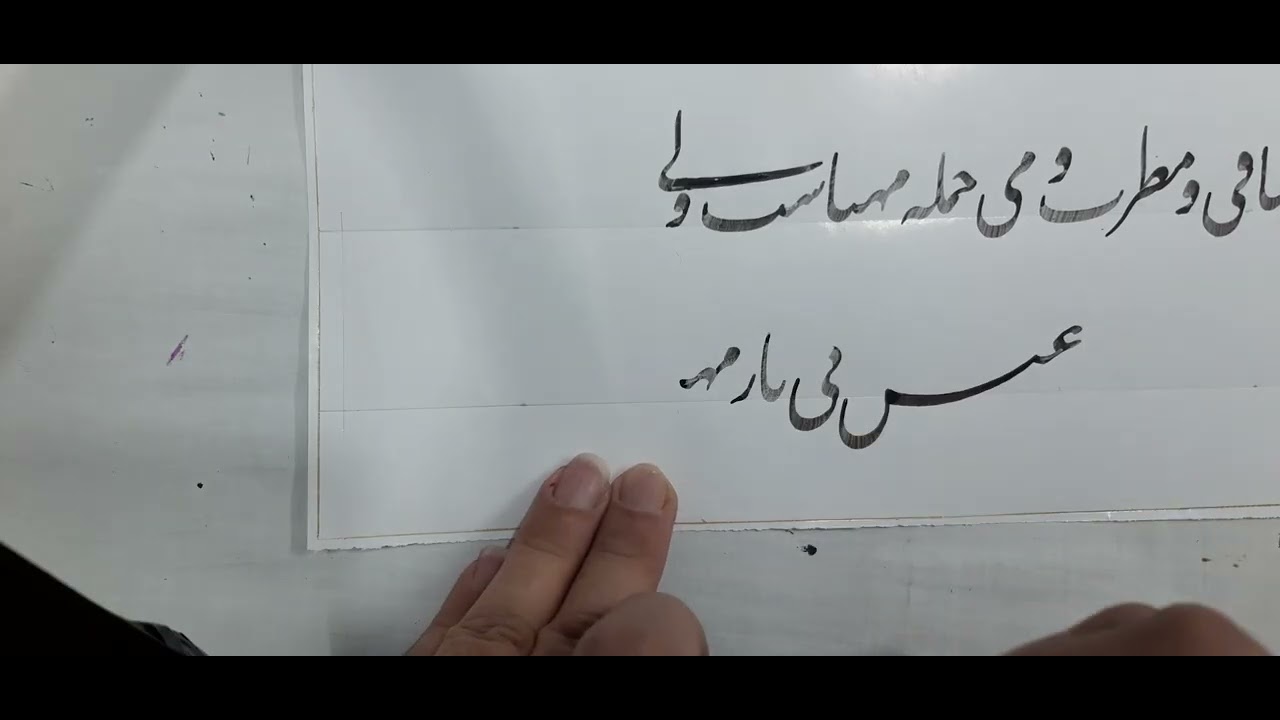 ساقی و مطرب و می جمله مهیاست ولی
عیش بی یار مهـ